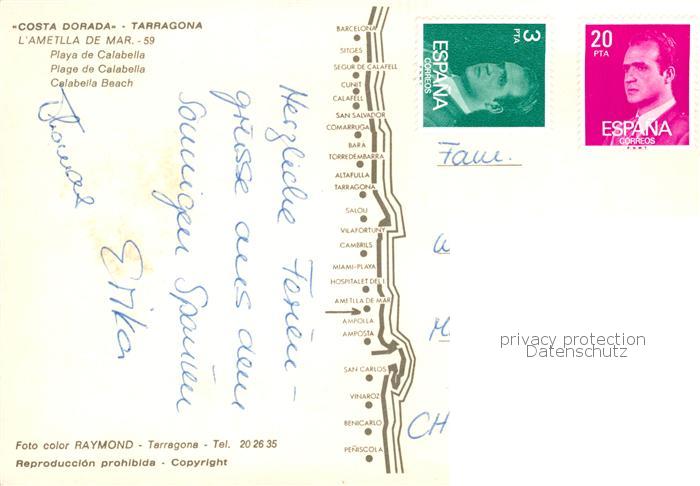 «COSTA DORADA» - TARRAGONA
L'AMETLLA DE MAR. - 59
Playa de Calabella
Plage de Calabella
Calabella Beach
Herzliche Ferien-
grüsse aus dem
sonnigen Spanien
Erika
Thomas
Foto color RAYMOND - Tarragona - Tel. 20 26 35
Reproducción prohibida - Copyright
BARCELONA
SITGES
SEGUR DE CALAFELL
CUNIT
CALAFELL
SAN SALVADOR
COMARRUGA
BARA
TORREDEMBARRA
ALTAFULLA
TARRAGONA
SALOU
VILAFORTUNY
CAMBRILS
MIAMI-PLAYA
HOSPITALET DEL I.
AMETLLA DE MAR
AMPOLLA
AMPOSTA
SAN CARLOS
VINAROZ
BENICARLO
PEÑISCOLA
3 PTA
ESPAÑA
CORREOS
20
PTA
ESPAÑA
CORREOS
F.N.M.T.
Fam.
CH
privacy protection
Datenschutz